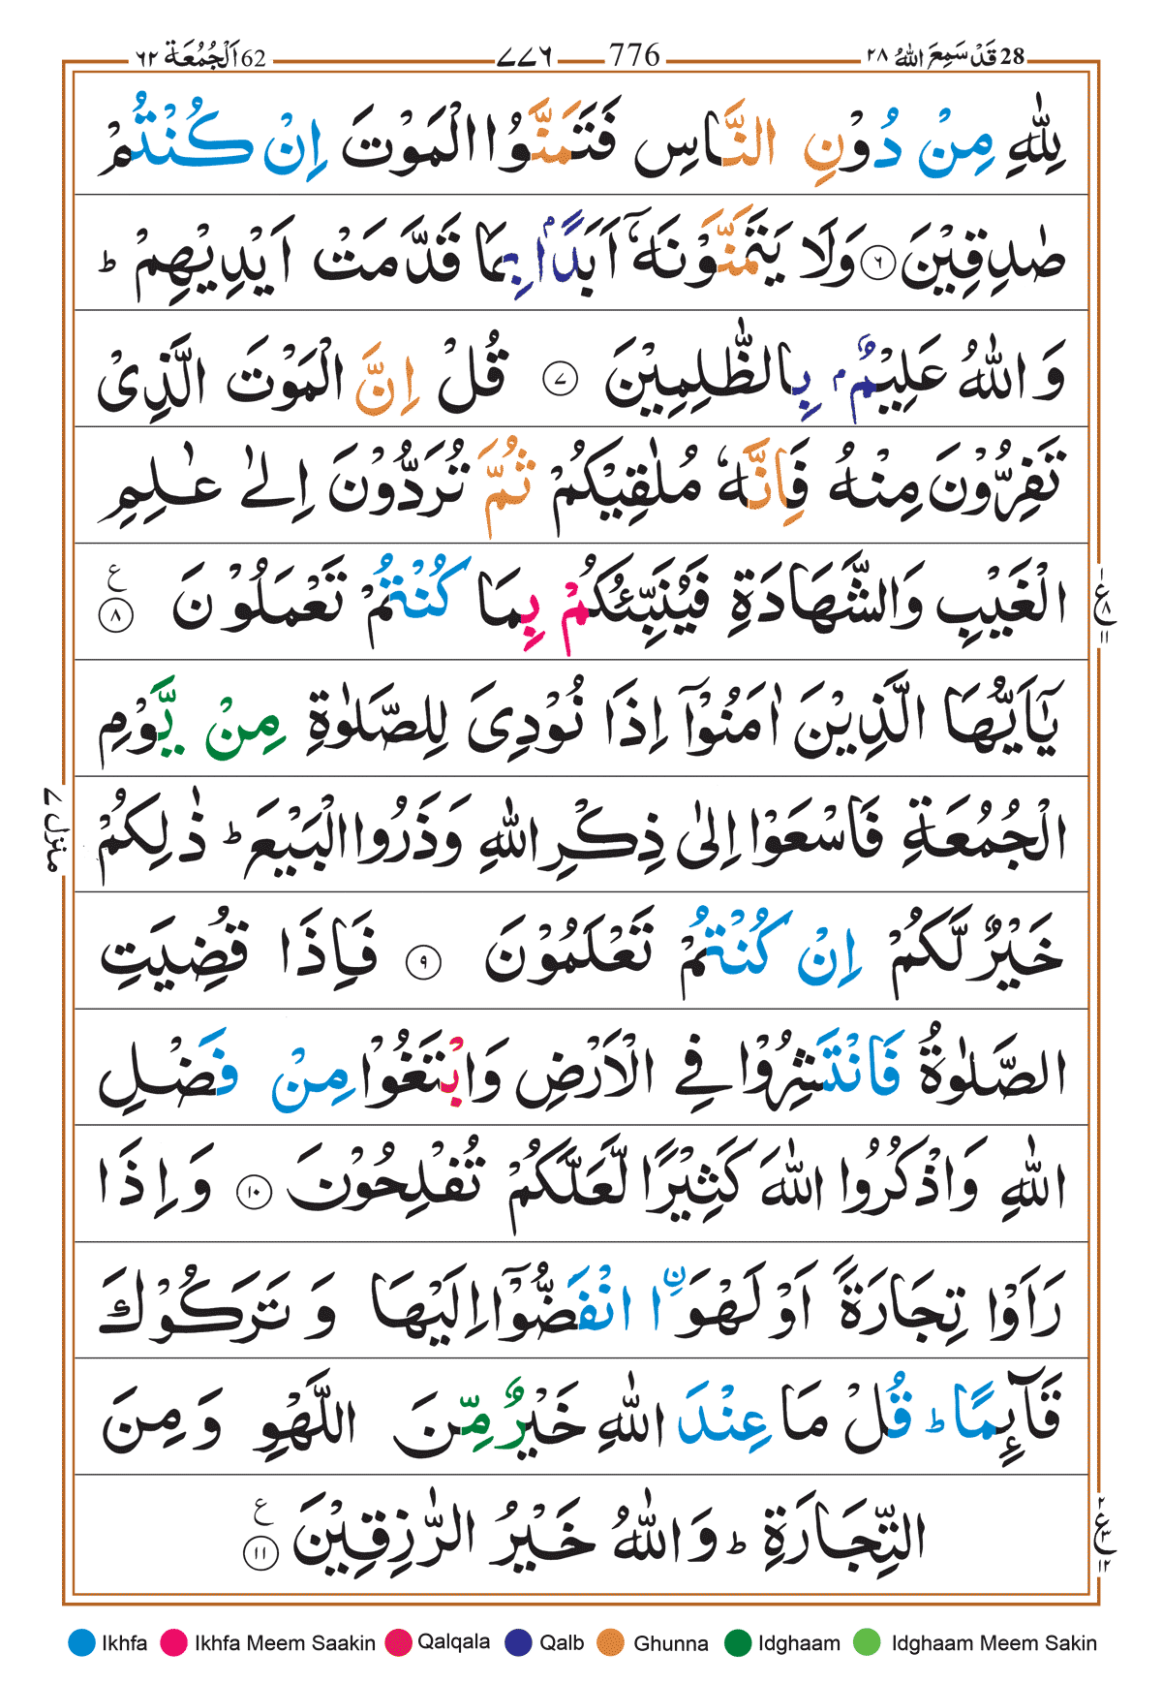 28 قَدْ سَمِعَ اللّٰهُ ٢٨ 776 ٧٧٦ 62 اَلْجُمُعَة ٦٢
لِلّٰهِ مِنْ دُوْنِ النَّاسِ فَتَمَنَّوُا الْمَوْتَ اِنْ كُنْتُمْ
صٰدِقِيْنَ ٦ وَلَا يَتَمَنَّوْنَهٗٓ اَبَدًۢا بِمَا قَدَّمَتْ اَيْدِيْهِمْ ؕ
وَاللّٰهُ عَلِيْمٌۢ بِالظّٰلِمِيْنَ ٧ قُلْ اِنَّ الْمَوْتَ الَّذِىْ
تَفِرُّوْنَ مِنْهُ فَاِنَّهٗ مُلٰقِيْكُمْ ثُمَّ تُرَدُّوْنَ اِلٰى عٰلِمِ
الْغَيْبِ وَالشَّهَادَةِ فَيُنَبِّئُكُمْ بِمَا كُنْتُمْ تَعْمَلُوْنَ ٨ ع
يٰۤاَيُّهَا الَّذِيْنَ اٰمَنُوْۤا اِذَا نُوْدِىَ لِلصَّلٰوةِ مِنْ يَّوْمِ
الْجُمُعَةِ فَاسْعَوْا اِلٰى ذِكْرِ اللّٰهِ وَذَرُوا الْبَيْعَ ؕ ذٰلِكُمْ
خَيْرٌ لَّكُمْ اِنْ كُنْتُمْ تَعْلَمُوْنَ ٩ فَاِذَا قُضِيَتِ
الصَّلٰوةُ فَانْتَشِرُوْا فِى الْاَرْضِ وَابْتَغُوْا مِنْ فَضْلِ
اللّٰهِ وَاذْكُرُوا اللّٰهَ كَثِيْرًا لَّعَلَّكُمْ تُفْلِحُوْنَ ١٠ وَاِذَا
رَاَوْا تِجَارَةً اَوْ لَهْوَا۟ ۨانْفَضُّوْۤا اِلَيْهَا وَتَرَكُوْكَ
قَآئِمًا ؕ قُلْ مَا عِنْدَ اللّٰهِ خَيْرٌ مِّنَ اللَّهْوِ وَمِنَ
التِّجَارَةِ ؕ وَاللّٰهُ خَيْرُ الرّٰزِقِيْنَ ١١ ع
١ ع ٨ ١١
منزل ٧
٢ ع ٣ ١٢
Ikhfa Ikhfa Meem Saakin Qalqala Qalb Ghunna Idghaam Idghaam Meem Sakin